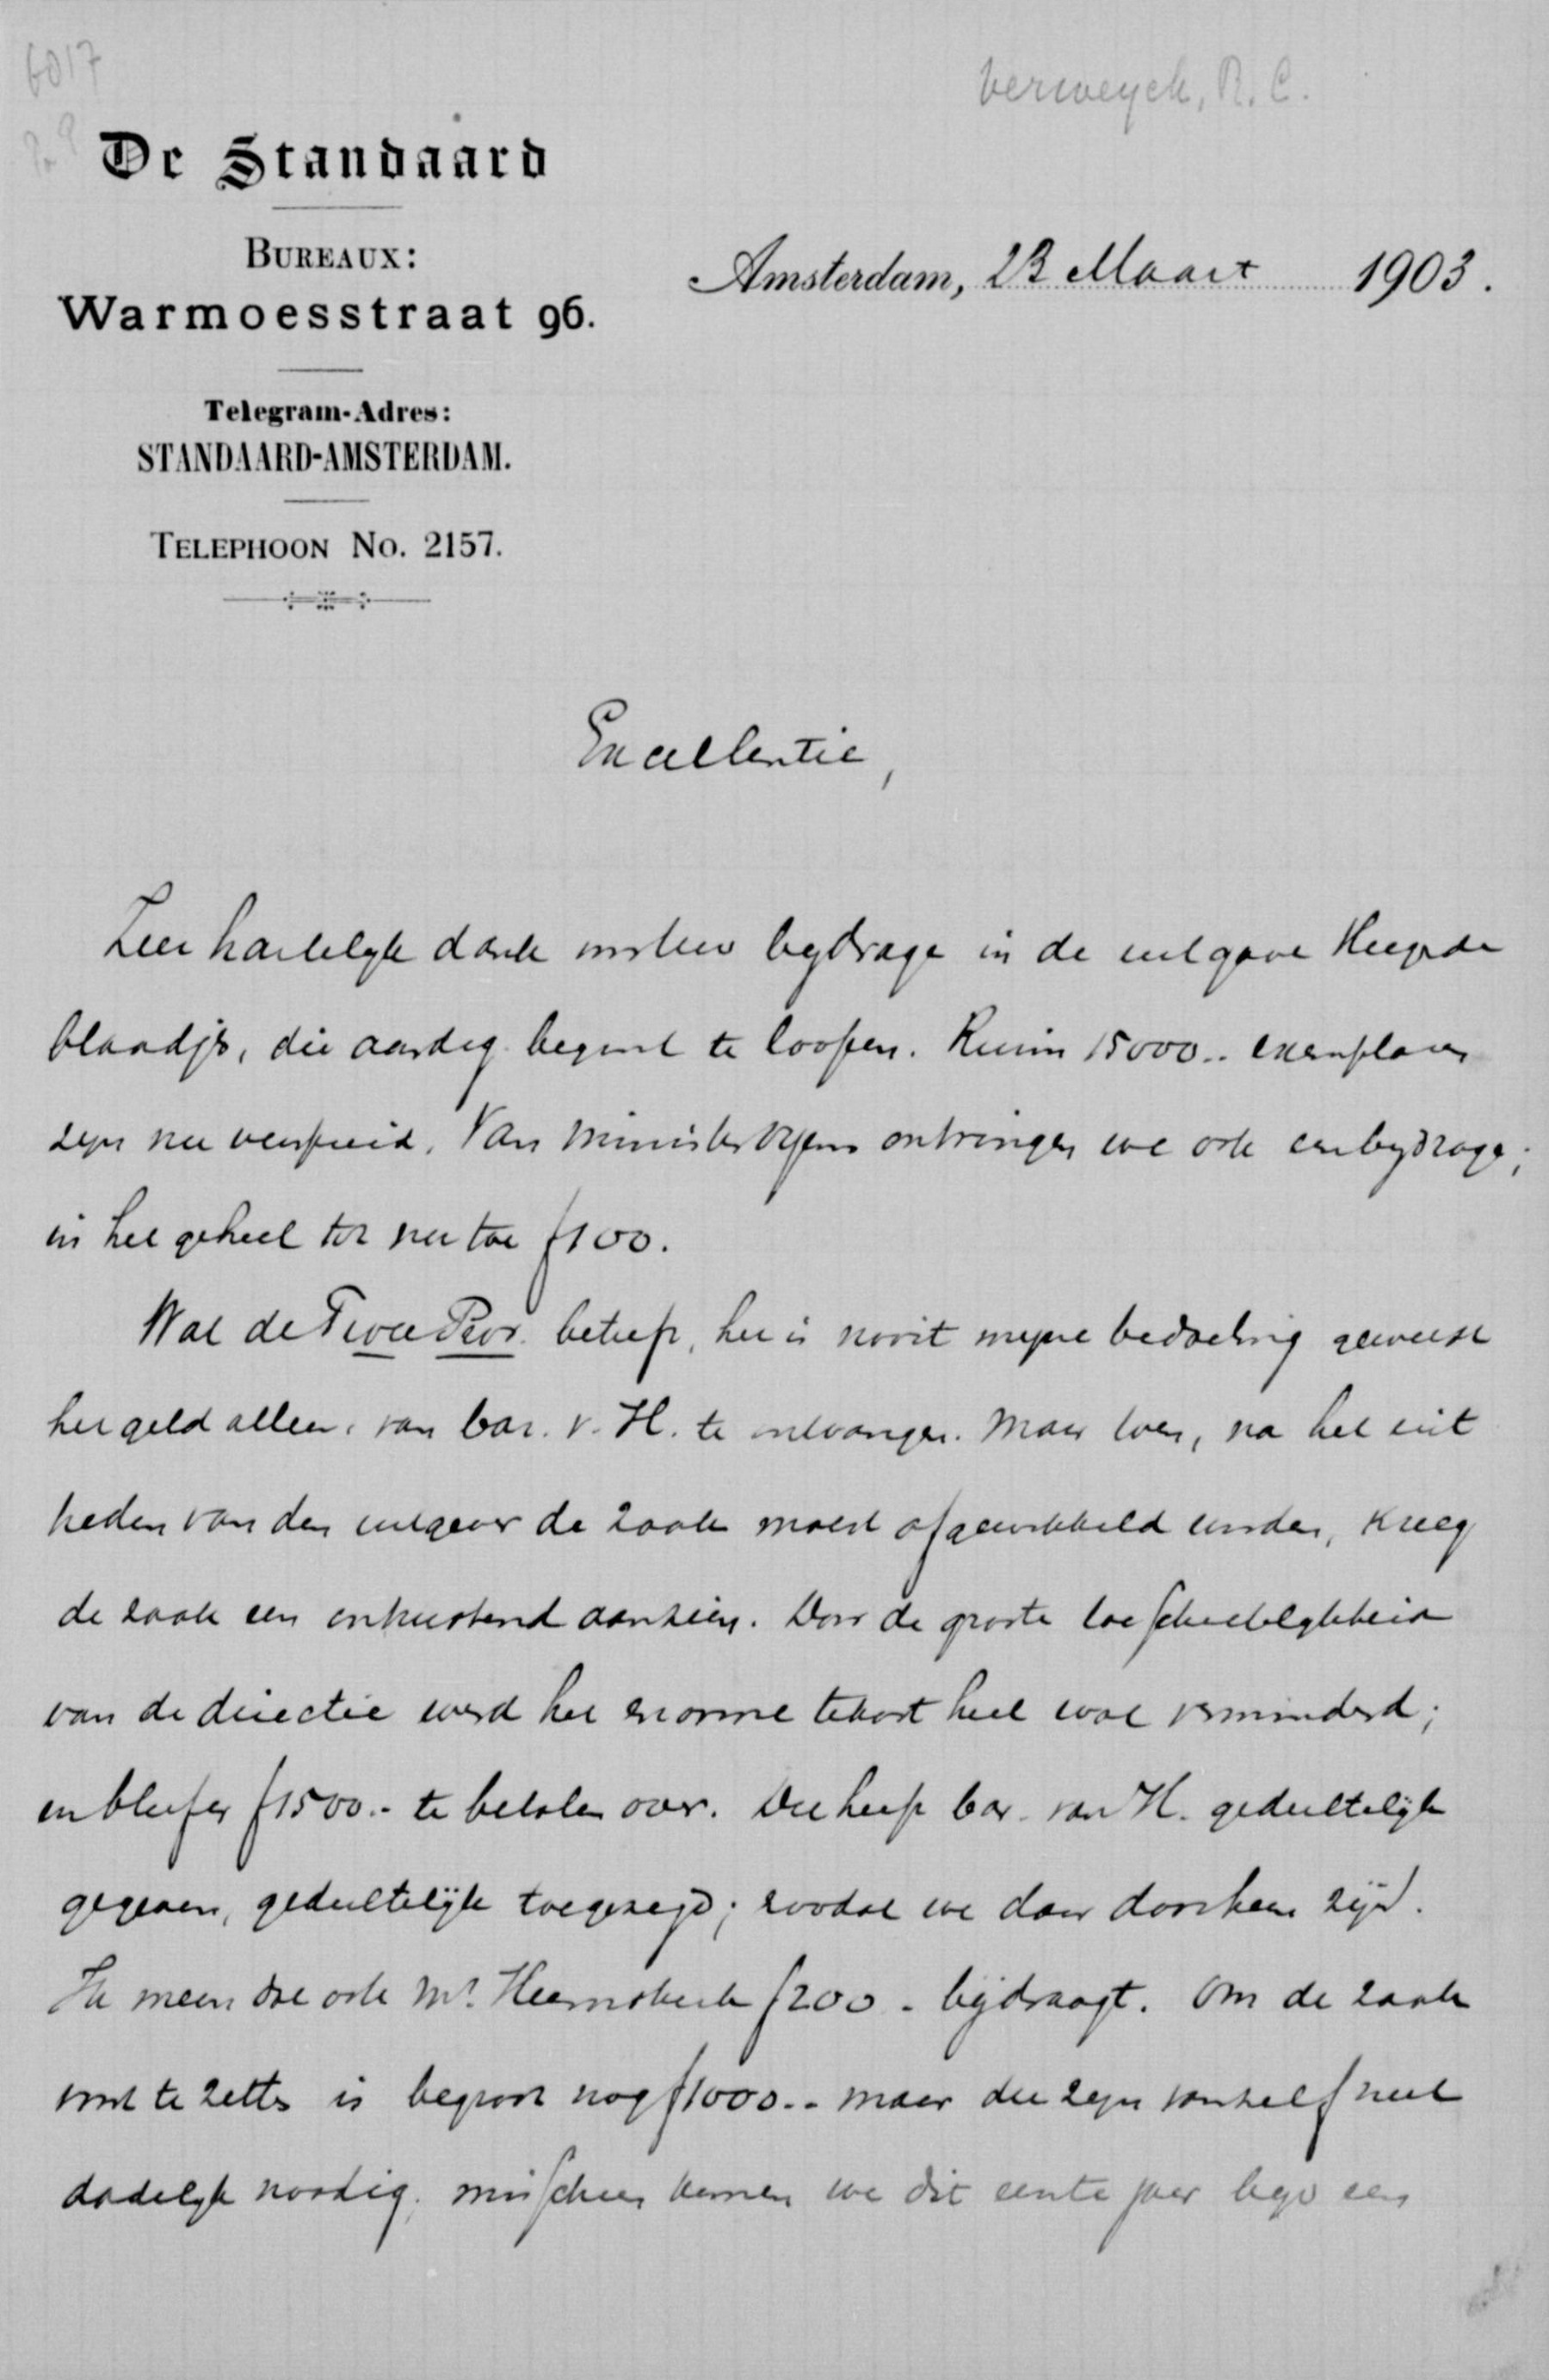 6017
Verweyck, R. C.
De Standaard
BUREAUX:
Warmoesstraat 96.
Amsterdam, 23 Maart 1903.
Telegram-Adres:
STANDAARD-AMSTERDAM.
TELEPHOON No. 2157.
Excellentie,
Zeer hartelyk dank voor uw bydrage in de uitgave
blaadjes, die aardig begint te loopen. Ruim 15000.- exemplaren
zyn nu verspreid. Van minister Kuyper ontvingen we ook een bydrage;
in het geheel tot nu toe f100.
Wat de Twee Prov. betreft, het is nooit myne bedoeling geweest
het geld alleen van bar. v. H. te ontvangen. Maar toen, na het uit
treden van den uitgever de zaak moest afgewikkeld worden, kreeg
de zaak een ontrustend aanzien. Door de groote toeschietelykheid
van de directie werd het enorme tekort heel wat verminderd;
en bleef er f1500.- te betalen over. Die heeft bar. van H. gedeeltelijk
gegeven, gedeeltelijk toegezegd; zoodat we daar doorheen zijn.
Ik meen dat ook Mr. Heemskerk f200.- bijdraagt. Om de zaak
voort te zetten is begroot nog f1000.- maar die zyn vanzelf niet
dadelyk noodig; misschien komen we dit eerste jaar by een